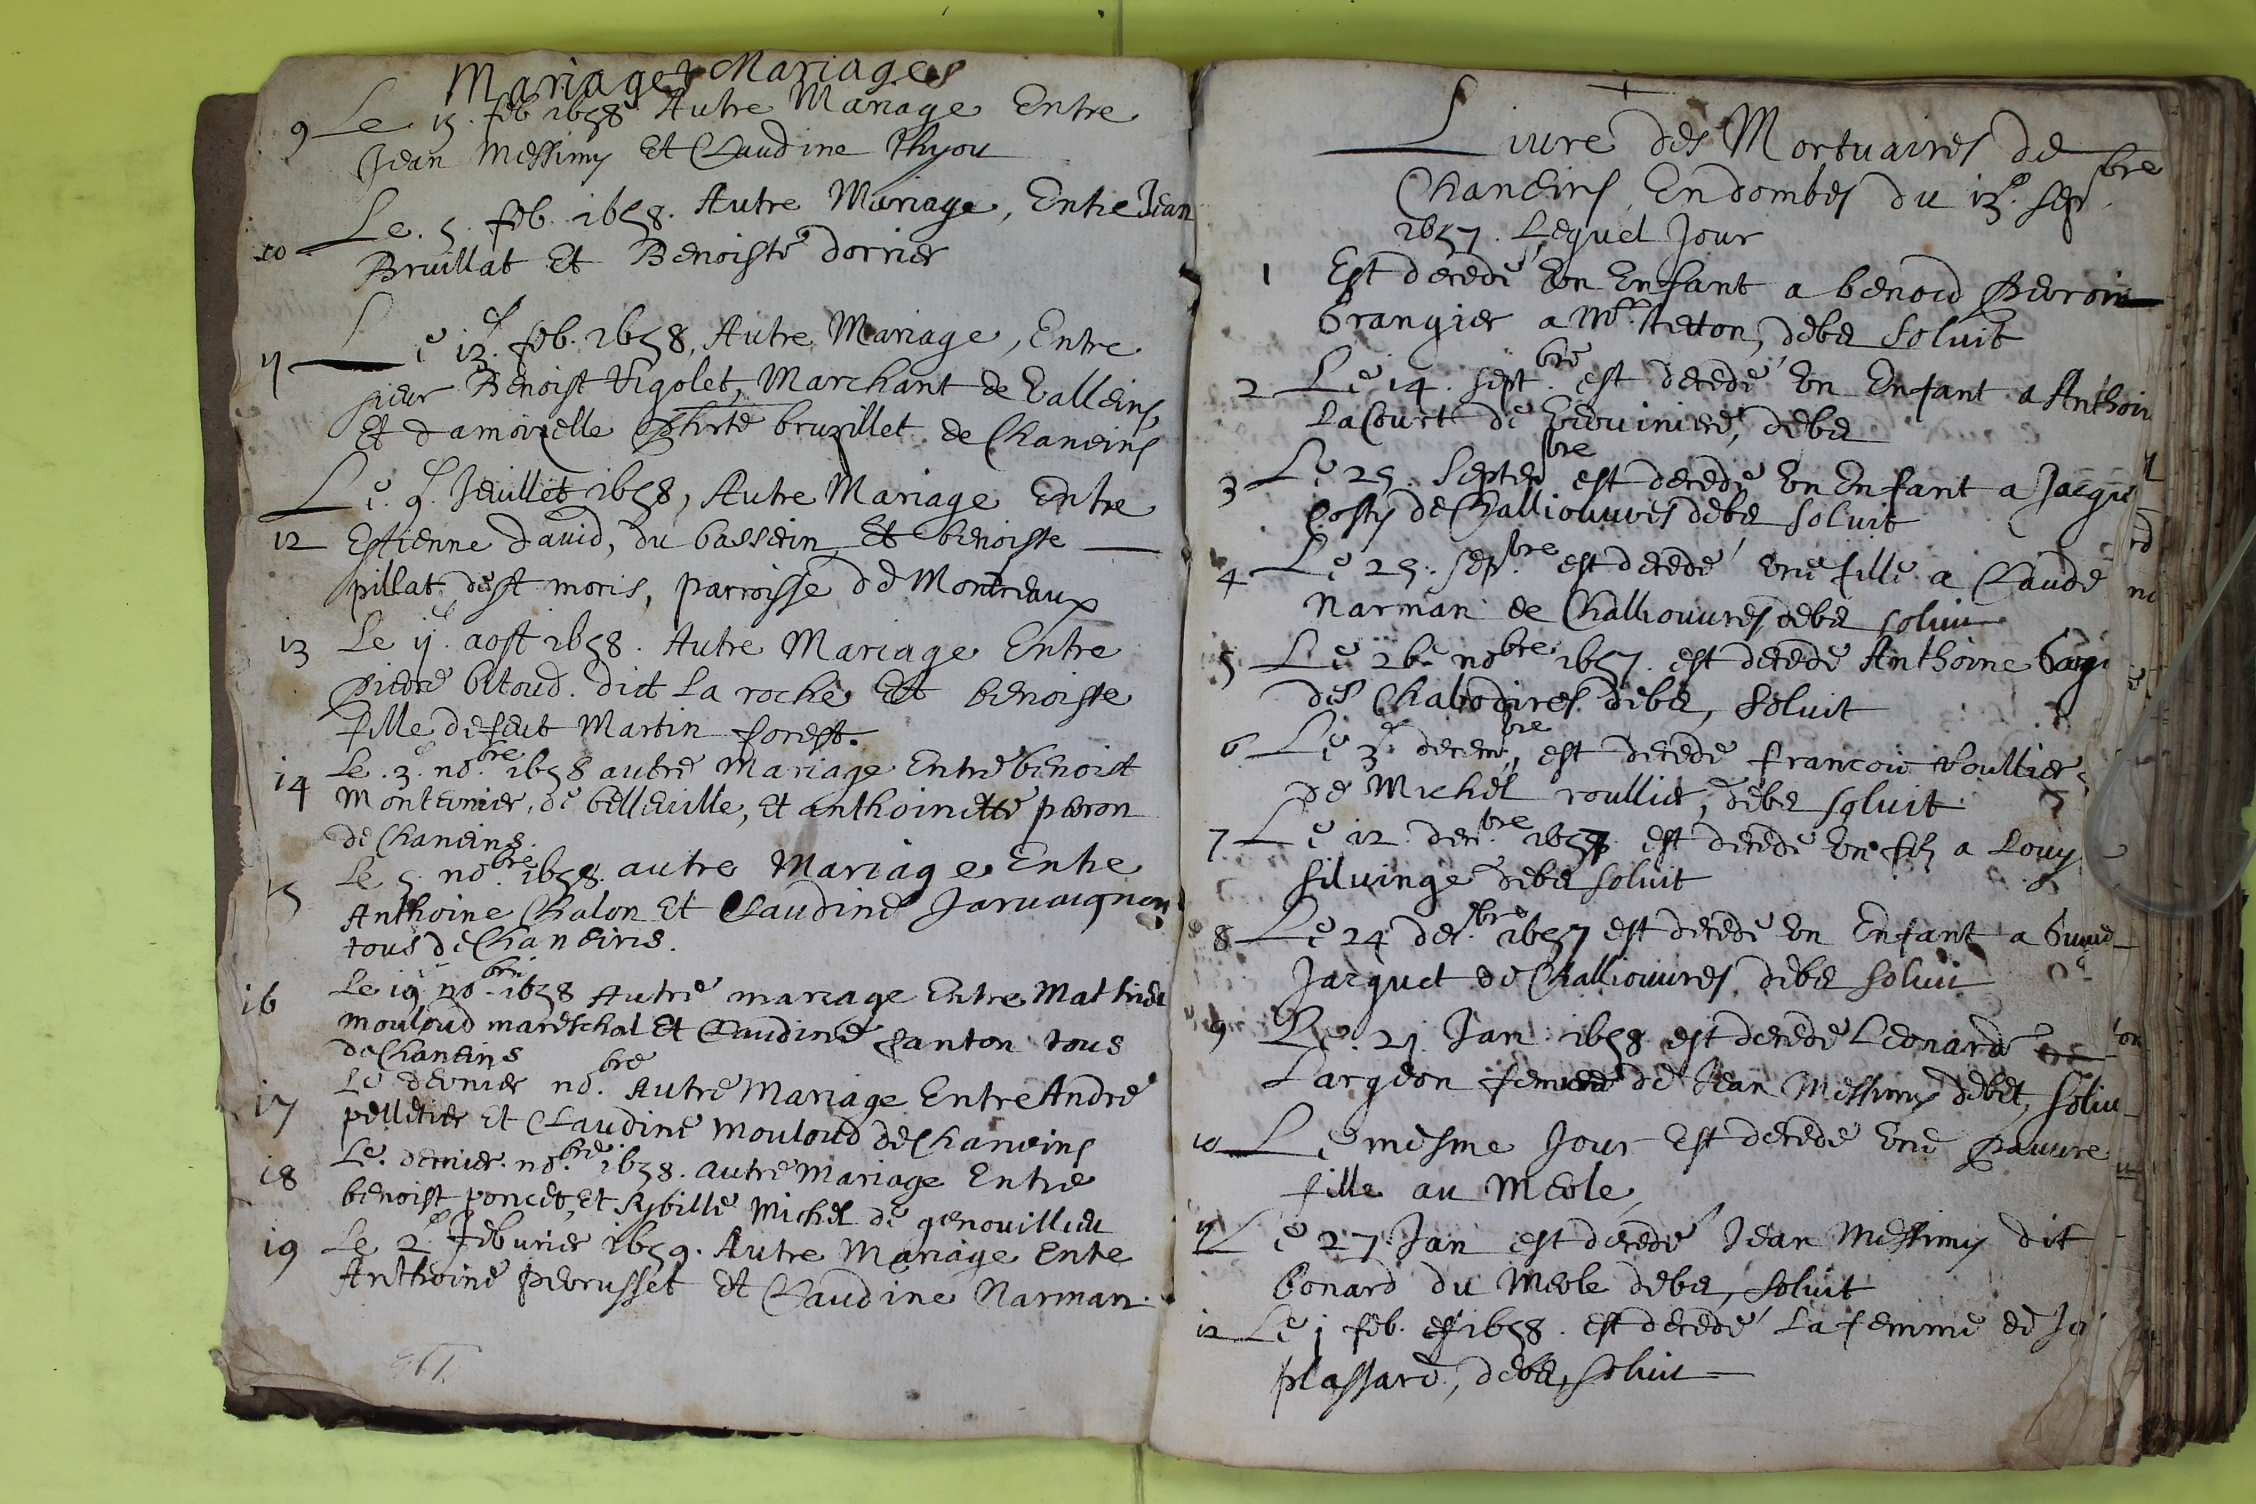 Mariages Mariages
9 Le 15. feb 1658 Autre Mariage Entre
Jean Messimy Et Claudine Thyou
10 Le. 5. feb. 1658. Autre Mariage, Entre Jean
Bruillat Et Benoiste dorrier
11 Le 13e. feb. 1658, Autre Mariage, Entre
sieur Benoist Vigolet, Marchant de Valleins,
Et damoiselle bruzillet de Chaneins
Le. 9. Jeuillet 1658, Autre Mariage Entre
12 Estienne david, du bassein Et benoiste
pillat de st moris, parroisse de Montceaux
13 Le ij. aost 1658. Autre Mariage Entre
Pierre bitoud. dit La roche Et benoiste
fille de feut Martin forest.
14 Le. 3. no.bre 1658 autre Mariage Entre benoist
Monternier, de belleville, Et anthoinette peron
de Chaneins.
15 Le 5. no.bre 1658. autre Mariage Entre
Anthoine Chalon Et Claudine Jaruaignon
tous de Chaneins.
16 Le 19 no.bre 1658 Autre mariage Entre Mathieu
Mouloud mareschal Et Claudine Santon tous
de Chaneins
17 Le dernier no.bre Autre Mariage Entre André
pelletier Et Claudine Mouloud de Chaneins
18 Le. dernier. no.bre 1658. autre Mariage Entre
benoist poncet, Et Sybille Michel de genouillieu
19 Le 2e Feburier 1659. Autre Mariage Ente
Anthoine perrusset Et Claudine Narman.
Liure des Mortuaires de
Chaneins, En dombes du 13e. sepbre
1657. Lequel Jour
1 Est decede Un Enfant a benoid Perroin
Grangier a Mr. Netton, debet Soluit
2 Le 14. sept.bre est decede Un Enfant a Anthoin
LaCourt de debet
3 Le 25. Septembre est decede Un Enfant a Jacque
Costy de Challiouures debet soluit
4 Le 25. sep.bre est decede une fille a Claude
Narman de Challiouures debet soluit
5 Le 26. nobre 1657. est decede Anthoine
des Chabodires debet, Soluit
6 Le 3e decembre, est decede francois Roullier
de Michel roullier, debet soluit
7. Le 12 dec.bre 1657 est decede Un fils a Louy
Siluinge debet soluit
8 Le 24 dec.bre 1657 est decede Un Enfant a
Jacquet de Challiouures debet soluit
9 Le. 21 Jan 1658 est decede Leonarde
Largeon femme de Jean Messimy debet, soluit
10 Le mesme Jour Est decede Une Pauure
fille au Meole,
11 Le 27. Jan est decede Jean Messimy dit
bonard du Meole debet, soluit
12 Le j feb. 1658. est decede La femme de Ja
plassard, debet, soluit